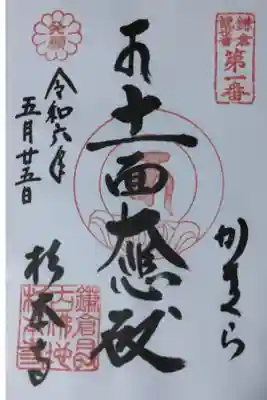 鎌倉
観世音
第一番
発願
かまくら
十一面大悲殿
令和六年
五月廿五日
杉本寺
鎌倉最
古佛地
杉本寺